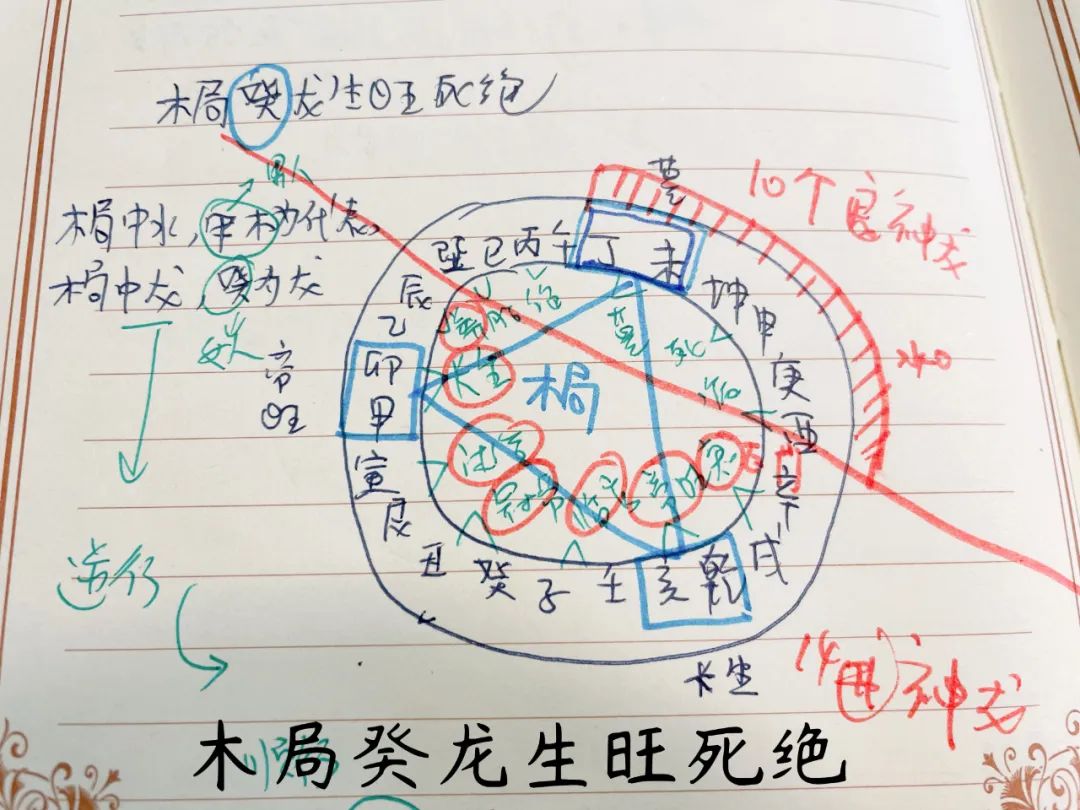 木局癸龙生旺死绝
男人
木局中水，甲木为代表，
木局中龙，癸为龙
女
帝旺
逆行
墓
10个
神龙
水口
巽 巳 丙 午 丁 未
坤 申 庚 酉 辛
戌
乾 亥
壬 子 癸 丑
辰 乙
卯 甲
木局
养 胎 绝
墓
死
长生
沐浴
冠带
临官
帝旺
衰
长生
14个
神龙
木局癸龙生旺死绝